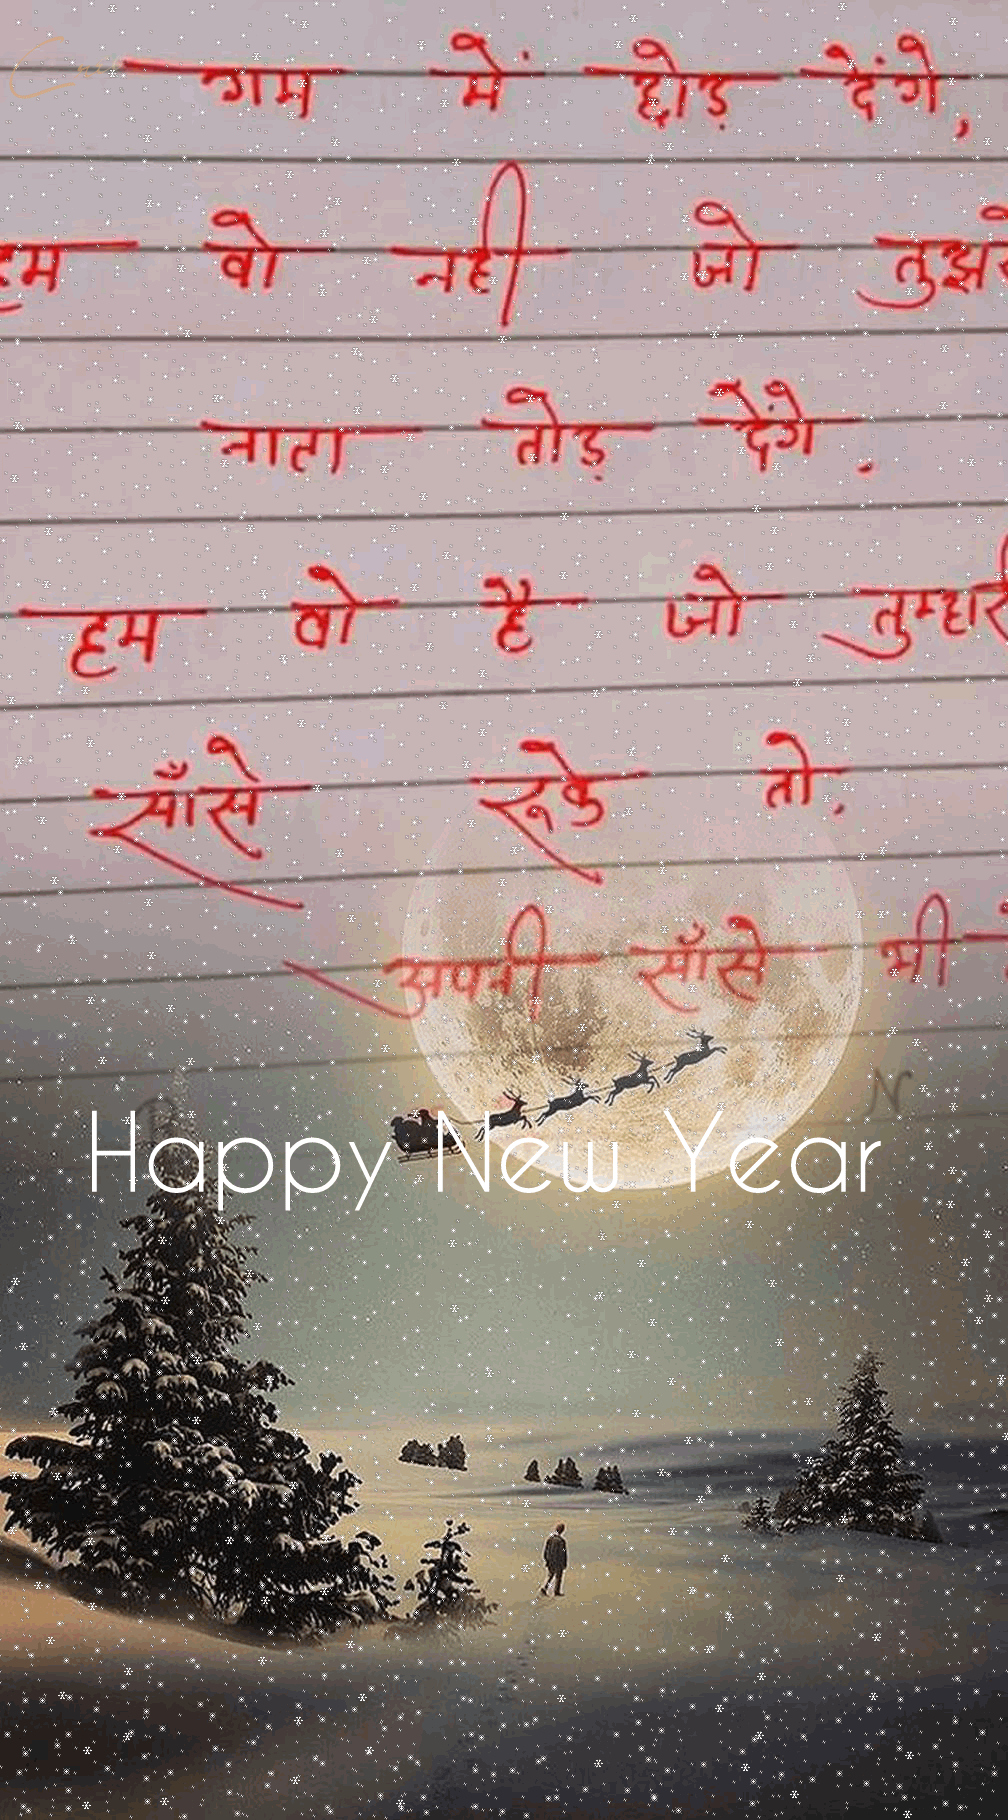 गम में छोड़ देंगे,
हम वो नही जो तुझसे
नाता तोड़ देंगे,
हम वो है जो तुम्हारी
साँसे रूके तो,
अपनी साँसे भी
N
Happy New Year